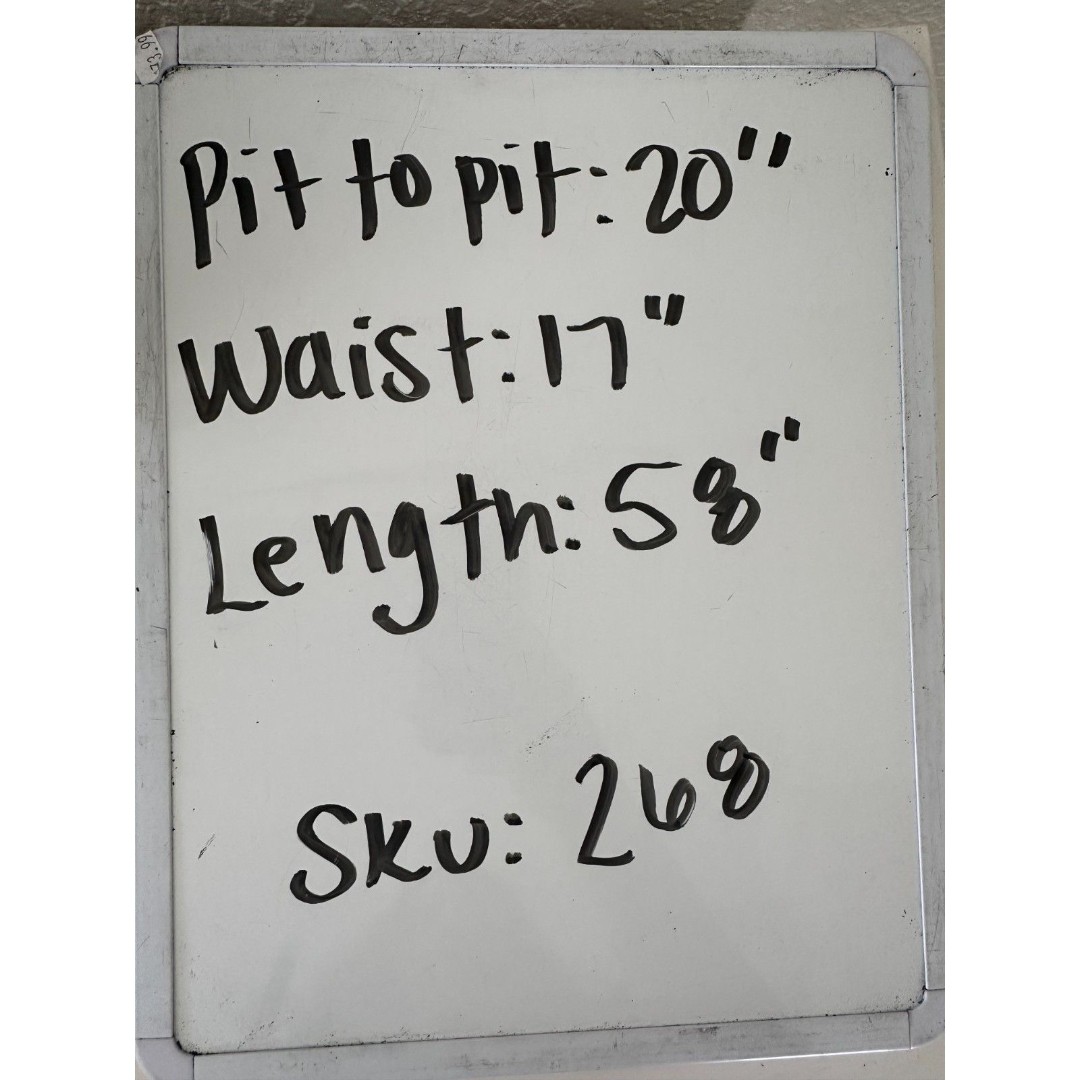 Pit to pit: 20"
Waist: 17"
Length: 58"
SKU: 268